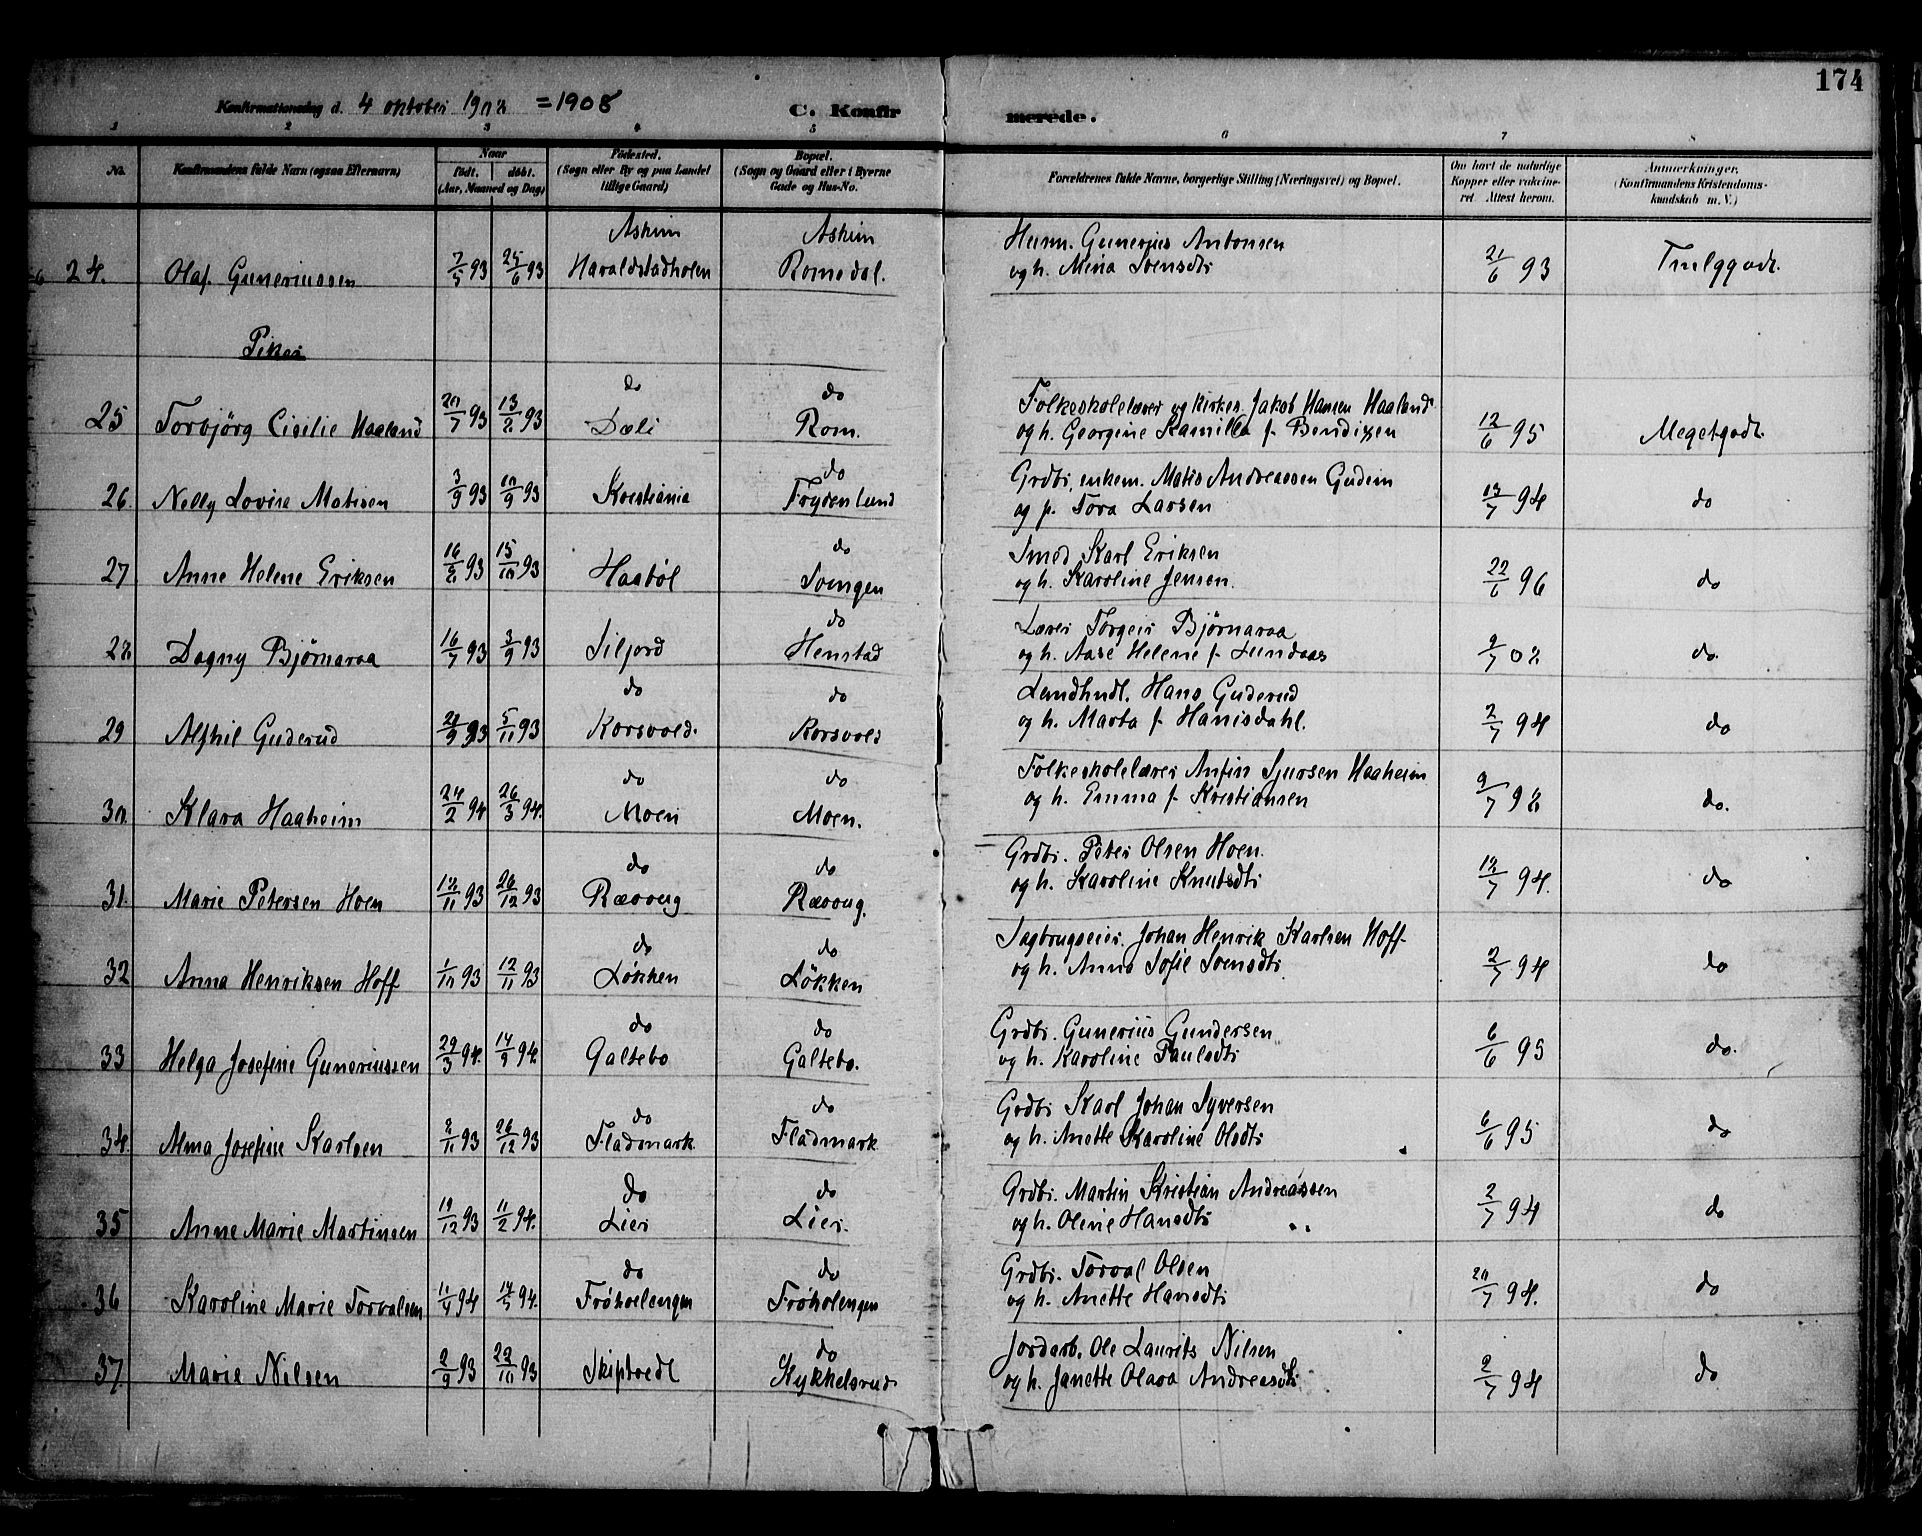 174
Konfirmationsdag d. 4 oktober 1908 = 1908 C. Konfirmerede.
1 2 3 4 5 6 7 8
No. Konfirmandens fulde Navn (ogsaa Efternavn) Naar født. døbt. (Aar, Maaned og Dag) Fødested. (Sogn eller By og paa Landet tillige Gaard) Bopæl. (Sogn og Gaard eller i Byerne Gade og Hus-No. Forældrenes fulde Navne, borgerlige Stilling (Næringsvei) og Bopæl. Om havt de naturlige Kopper eller vakcineret. Attest herom. Anmærkninger. (Konfirmandens Kristendomskundskab m. V.)
Askim Askim Husm. Gunerius Antonsen
24. Olaf Guneriussen 7/5 93 25/6 93 Haraldstadholen Romsdal. og h. Mina Svensdtr 21/6 93
Piker
do do Folkeskolelærer og kirkes. Jakob Hansen Haaland
25 Torbjørg Cicilie Haaland 20/7 93 13/8 93 Dæli Rom. og h. Georgine Kamilla f. Bendixen 12/6 95 Megetgodt.
do Grdbr. enkem. Matis Andreassen Gudem
26. Nelly Lovise Matisen 3/9 93 10/9 93 Kristiania Frydenlund og p. Tora Larsen 13/7 94 do
do Smed Karl Eriksen
27 Anne Helene Eriksen 16/8 93 15/10 93 Haabøl Svingen og h. Karoline Jensen. 22/6 96 do
do Lærer Torgeir Bjørnaraa
28 Dagny Bjørnaraa 16/7 93 3/9 93 Siljord Henstad og h. Aase Helene f. Lundaas 9/7 02 do.
do do Landhndl. Hans Guderud
29 Alfhil Guderud 20/9 93 5/11 93 Korsvold. Korsvold og h. Marta f. Hanisdahl. 2/7 94 do
do do Folkeskolelærer Anfin Sjursen Haaheim
30. Klara Haaheim 24/2 94 26/3 94. Moen Moen. og h. Emma f. Kristiansen 9/7 98 do.
do do Grdbr. Peter Olsen Hoen.
31. Marie Petersen Hoen 18/11 93 26/12 93 Rævoug Rævoug. og h. Karoline Knutsdtr 18/7 94. do
do do Sagbrugseier. Johan Henrik Karlsen Hoff
32 Anna Henriksen Hoff 1/10 93 12/11 93 Løkken Løkken og h. Anna Sofie Svensdtr. 2/7 94 do
do do Grdbr. Gunerius Gundersen
33 Helga Josefine Guneriussen 29/3 94. 14/9 94. Galtebo Galtebo. og h. Karoline Paulsdtr 6/6 95 do.
do do Grdbr Karl Johan Syversen
34. Alma Josefine Karlsen 2/11 93 26/12 93 Fladmark Fladmark og h. Anette Karoline Olsdtr 6/6 95 do
do do Grdbr. Martin Kristian Andreassen
35 Anne Marie Martinsen 19/12 93 11/2 94. Lier Lier. og h. Oline Hansdtr 2/7 94 do
do do Grdbr. Torval Olsen
36 Karoline Marie Torvalsen 11/4 94 14/5 94. Frøholengen og h. Anette Hansdtr 20/7 94. do
do Jordarb. Ole Laurits Nilsen
37. Marie Nilsen 2/9 93 22/10 93 Skiptvedt Kykkelsrud og h. Janette Olava Andreasdtr 2/7 94 do